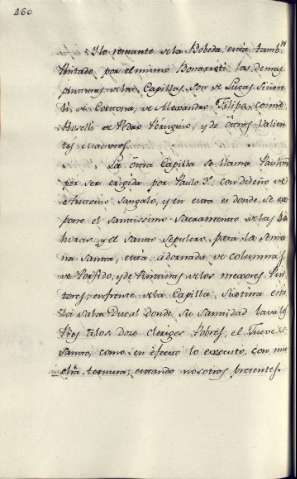 260
y lo restante de la Bobeda, está tamb.n
Pintado por el mismo Bonarroti las demas
pinturas de las Capillas Son de Lucas Siñore
li, de Cortona, de Alexandro Filipas, Cosme
Roseli de Pedro Perugino, y de otros valien
tes
La otra Capilla se llama Paulina
por ser erigida por Paulo 3.º con diseño de
Antonio Sangalo, y en esta es donde se ex
pone el Santissimo Sacramento de las 40
horas, y el Santo Sepulcro, para la Sema
na Santa, está adornada de columnas
de Porfido, y de Pinturas de los mexores Pin
tores, enfrente de la Capilla Sixtina está
la Sala Ducal donde Su Santidad lava los
Pies a los doze Clerigos Pobres, el Jueves
Santo, como en efecto lo executo, con mu
cha ternura, estando nosotros presentes.